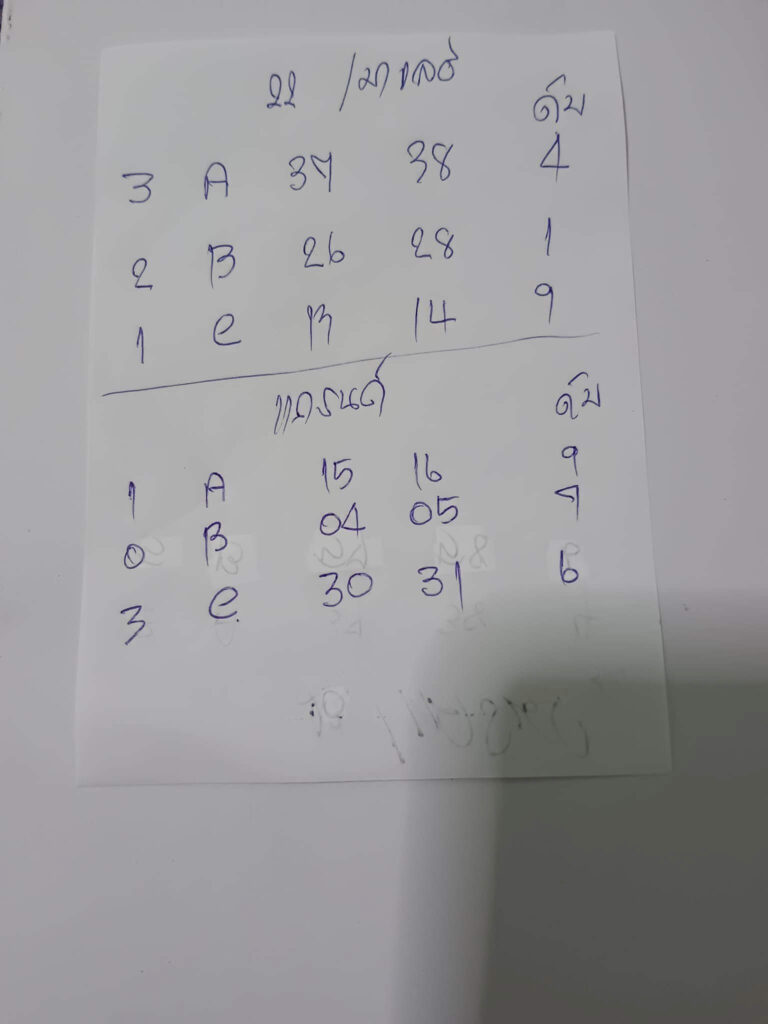 22 / มาเลย์
ดับ
3 A 37 38 4
2 B 26 28 1
1 C 13 14 9
แกรนด์
ดับ
1 A 15 16 9
0 B 04 05 7
3 C 30 31 6